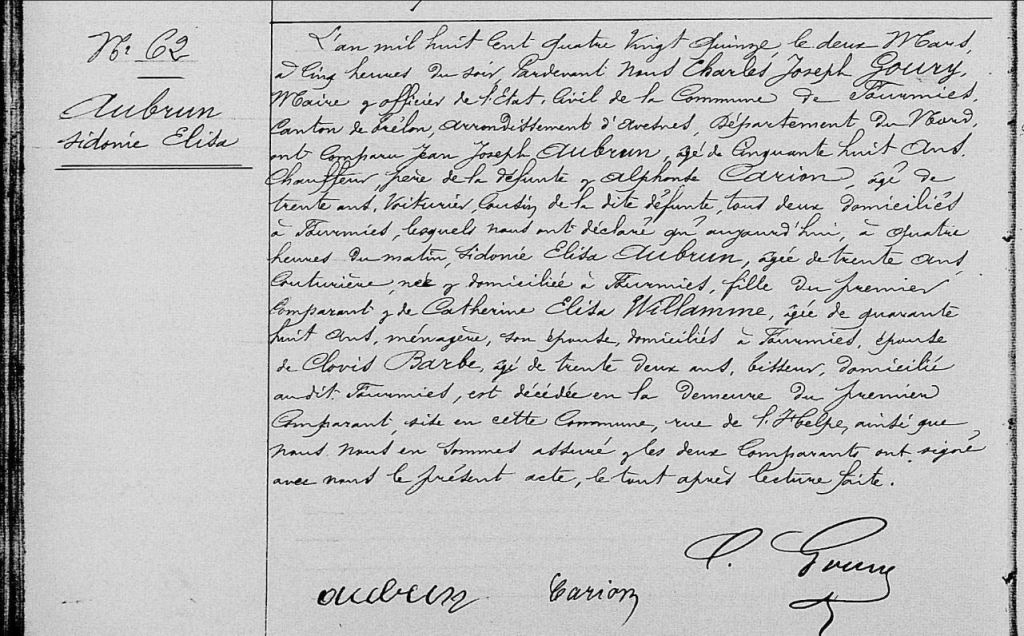 N° 62
Aubrun
Sidonie Elisa
L'an mil huit cent quatre vingt quinze, le deux Mars,
à cinq heures du soir Pardevant Nous Charles Joseph Goury,
Maire & officier de l'Etat-Civil de la Commune de Fourmies,
Canton de Trélon, arrondissement d'Avesnes, Département du Nord,
ont comparu Jean Joseph Aubrun, âgé de Cinquante huit ans,
Chauffeur, père de la défunte & Alphonse Carion, âgé de
trente ans, Voiturier, Cousin de la dite défunte, tous deux domiciliés
à Fourmies, lesquels nous ont déclaré qu'aujourd'hui, à quatre
heures du matin, Sidonie Elisa Aubrun, âgée de trente ans,
Couturière, née & domiciliée à Fourmies, fille du premier
Comparant & de Catherine Elisa Willamme, âgée de quarante
huit ans, ménagère, son épouse, domiciliés à Fourmies, épouse
de Clovis Barbe, âgé de trente deux ans, tisseur, domicilié
audit Fourmies, est décédée en la demeure du premier
Comparant, sise en cette Commune, rue de l'Helpe, ainsi que
nous nous en sommes assuré & les deux Comparants ont signé
avec nous le présent acte, le tout après lecture faite.
C. Goury
Aubrun Carion